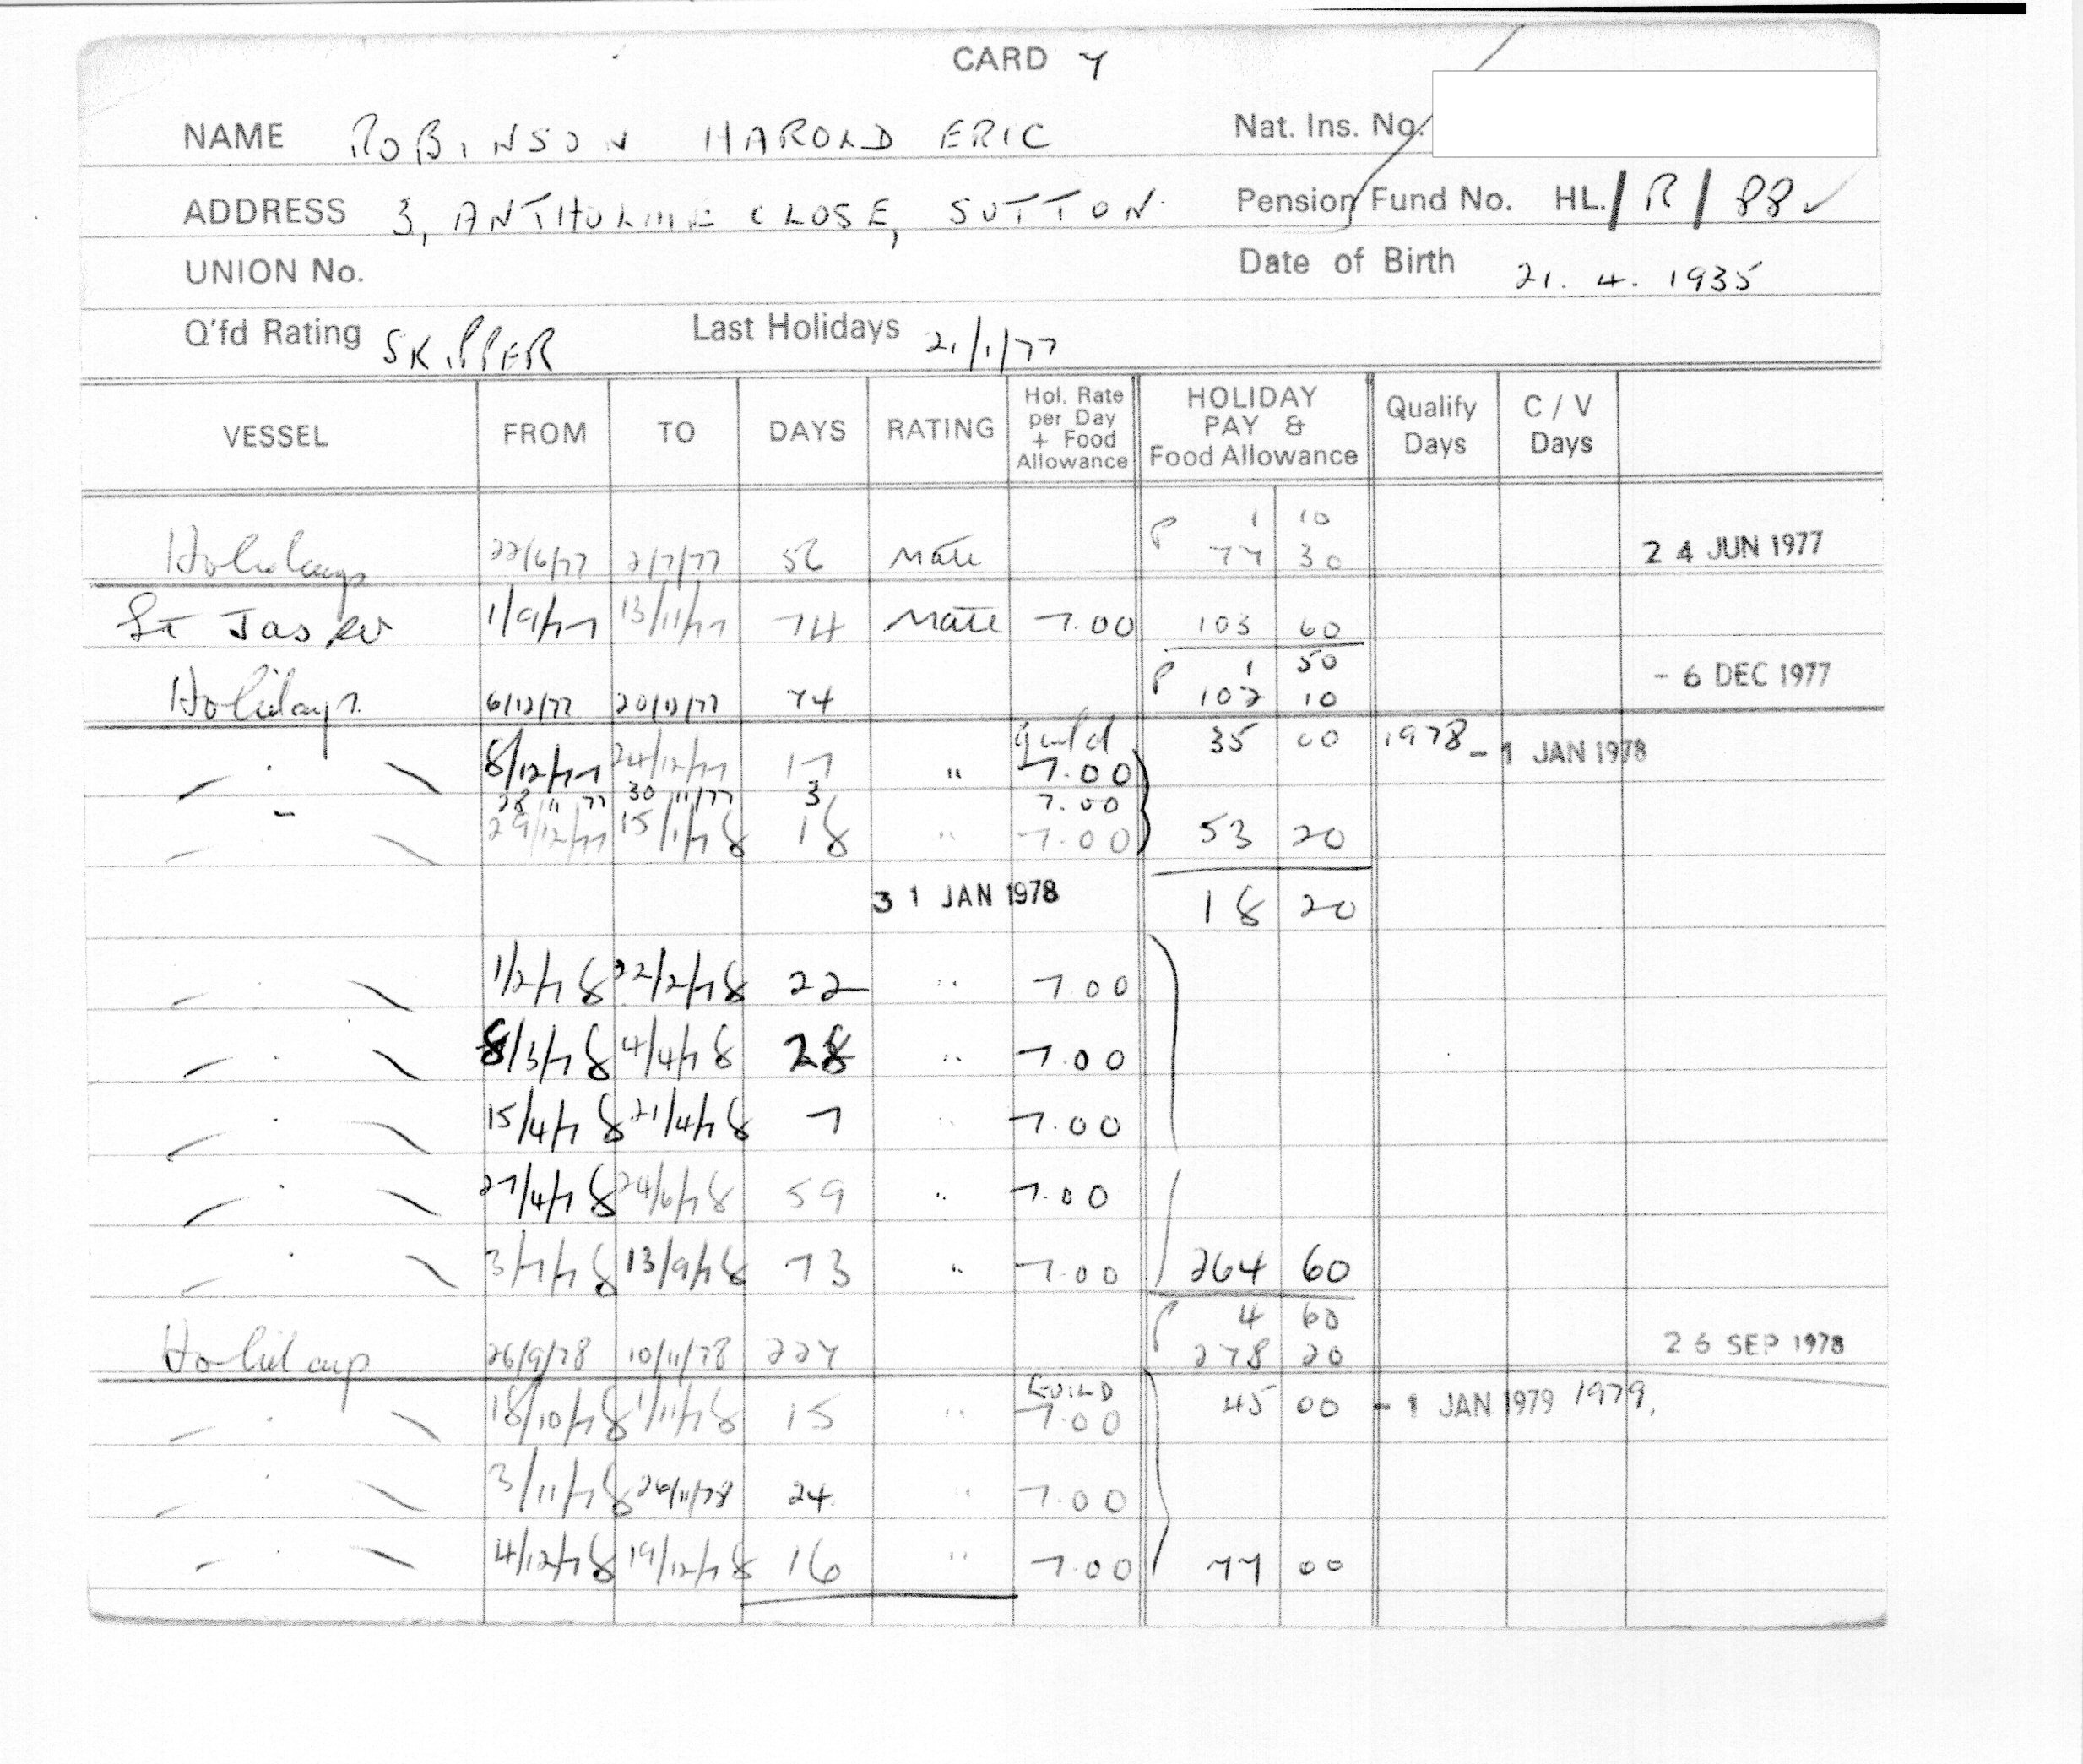 CARD 7
NAME ROBINSON HAROLD ERIC Nat. Ins. No.
ADDRESS 3, ANTHOLME CLOSE, SUTTON. Pension Fund No. HL./R/88
UNION No. Date of Birth 21. 4. 1935
Q'fd Rating SKIPPER Last Holidays 21/1/77
VESSEL FROM TO DAYS RATING Hol. Rate per Day + Food Allowance HOLIDAY PAY & Food Allowance Qualify Days C / V Days
P 1 10
Holidays 22/6/77 2/7/77 56 Mate 77 30 24 JUN 1977
St Jasper 1/9/77 13/11/77 74 Mate 7.00 103 60
P 1 50
Holidays 6/12/77 20/12/77 74 102 10 - 6 DEC 1977
guild 35 00 1978 - 1 JAN 1978
8/12/77 24/12/77 17 " 7.00
28 " 77 30 " /77 3 7.00
29/12/77 15/1/78 18 " 7.00 53 20
31 JAN 1978 18 20
1/2/78 22/2/78 22 " 7.00
8/3/78 4/4/78 28 " 7.00
15/4/78 21/4/78 7 " 7.00
27/4/78 24/6/78 59 " 7.00
3/7/78 13/9/78 73 " 7.00 264 60
P 4 60
26/9/78 10/11/78 227 278 20 26 SEP 1978
GUILD
18/10/78 1/11/78 15 " 7.00 45 00 - 1 JAN 1979 1979.
3/11/78 26/11/78 24 " 7.00
4/12/78 19/12/78 16 " 7.00 77 00